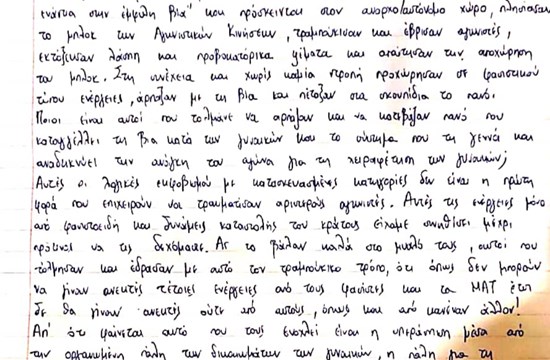 ενάντια στην έμφυλη βία" που πρόσκεινται στον αναρχο/αυτόνομο χώρο, πλησίασαν
το μπλοκ των Αγωνιστικών Κινήσεων, τραμπούκισαν και έβρισαν αγωνιστές,
εκτόξευσαν λάσπη και προβοκατόρικα ψέματα και απαίτησαν την αποχώρηση
του μπλοκ. Στη συνέχεια και χωρίς καμία ντροπή προχώρησαν σε φασιστικού
τύπου ενέργειες, άρπαξαν με τη βία και πέταξαν στα σκουπίδια το πανό.
Ποιοι είναι αυτοί που τολμάνε να αρπάξουν και να κατεβάζουν πανό που
καταγγέλλει τη βία κατά των γυναικών και το σύστημα που τη γεννά και
αναδεικνύει την ανάγκη του αγώνα για τη χειραφέτηση των γυναικών;
Αυτές οι λογικές εκφοβισμού με κατασκευασμένες κατηγορίες δεν είναι η πρώτη
φορά που επιχειρούν να τραματίσουν αριστερούς αγωνιστές. Αυτές τις ενέργειες μόνο
από φασιστοειδή και δυνάμεις καταστολής του κράτους είχαμε συνηθίσει μέχρι
πρότινος να τις δεχόμαστε. Ας το βάλουν καλά στο μυαλό τους, αυτοί που
τόλμησαν και έδρασαν με αυτό τον τραμπούκικο τρόπο, ότι όπως δεν μπορούν
να γίνουν ανεκτές τέτοιες ενέργειες από τους φασίστες και τα ΜΑΤ έτσι
δε θα γίνουν ανεκτές ούτε από αυτούς, όπως και από κανέναν άλλον!
Απ' ότι φαίνεται αυτό που τους ενοχλεί είναι η υπεράσπιση μέσα από
την οργανωμένη πάλη των δικαιωμάτων των γυναικών, η πάλη για τη